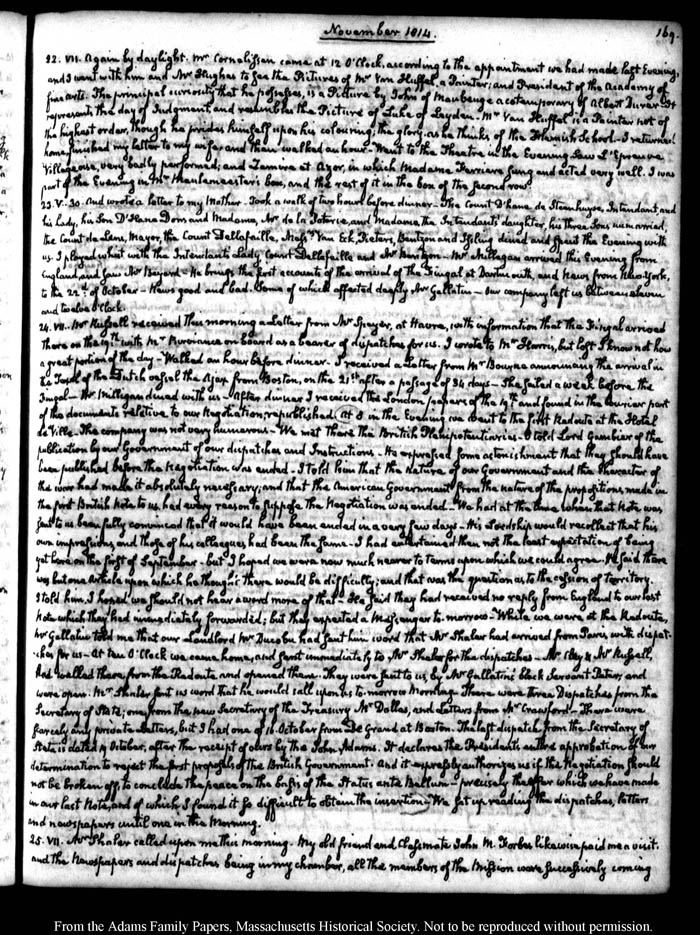 November 1814.
169.
22. VII. Again by daylight. Mr Cornelissen came at 12 O'Clock, according to the appointment we had made last Evening,
and I went with him and Mr Hughes to see the Pictures of Mr Van Huffel, a Painter; and President of the Academy of
fine arts. The principal curiosity that he possesses, is a Picture by John of Maubeuge a cotemporary of Albert Durer. It
represents the day of Judgment and resembles the Picture of Luke of Leyden. Mr Van Huffel is a Painter not of
the highest order, though he prides himself upon his colouring; the glory, as he thinks of the Flemish School. I returned
home, finished my letter to my wife, and then walked an hour. Went to the Theatre in the Evening. Saw L'Epreuve
Villageoise, very badly performed; and Zemire et Azor, in which Madame Ferriere sung and acted very well. I was
part of the Evening in Mr Meulemeester's box, and the rest of it in the box of the second row.
23. V. 30. And wrote a letter to my Mother. Took a walk of two hours before dinner. The Count D'hane de Steenhuyse, Intendant and
his lady, his Son D'Hane Dons and Madame, Mr de la and Madame, the Intendants' daughter, his three Sons unmarried,
the Count de Lens, Mayor, the Count Dellafaille, Messrs Van Eck, Pieters, Bentzon and dined and spent the Evening with
us. I played whist with the Intendants Lady, Count Dellafaille and Mr Bentzon. Mr Milligan arrived this Evening from
England, and saw Mr Bayard. He brings the first accounts of the arrival of the Fingal at Dartmouth, and News from New-York,
to the 22d of October. News good and bad. Some of which affected deeply Mr Gallatin. Our company left us between eleven
and twelve O'Clock.
24. VII. Mr Russell received this morning a Letter from Mr Speyer, at Havre, with information that the Fingal arrived
there on the 19th with Mr on board as a bearer of dispatches for us. I wrote to Mr Harris, but lost I know not how
a great portion of the day. Walked an hour before dinner. I received a Letter from Mr Bourne announcing the arrival in
the Texel of the Dutch vessel the Ajax from Boston, on the 21st after a passage of 34 days. She sailed a week before the
Fingal. Mr Milligan dined with us. After dinner I received the London papers of the 19th and found in the Courier part
of the documents relative to our Negotiation, republished. At 8 in the Evening we went to the first Redoute at the Hotel
de Ville. The company was not very numerous. We met there the British Plenipotentiaries. I told Lord Gambier of the
publication by our Government of our dispatches and Instructions. He expressed some astonishment that they should have
been published before the Negotiation was ended. I told him that the nature of our Government and the character of
the war had made it absolutely necessary; and that the American Government from the nature of the propositions made in
the first British Note to us had every reason to suppose the Negotiation was ended. We had at the time when that Note was
sent to us been fully convinced that it would have been ended in a very few days. His Lordship would recollect that his
own impressions, and those of his colleagues had been the same. I had entertained then not the least expectation of being
yet here on the first of September. but I hoped we were now much nearer to terms upon which we could agree. He said there
was but one Article upon which he thought there would be difficulty; and that was the question as to the cession of Territory.
I told him, I hoped we should not hear a word more of that. He said they had received no reply from England to our last
Note which they had immediately forwarded; but they expected a Messenger to-morrow. While we were at the Redoute,
Mr Gallatin told me that our Landlord Mr Ducobu had sent him word that Mr Shaler had arrived from Paris with dispat-
ches for us. At ten O'Clock we came home, and sent immediately to Mr Shaler for the dispatches. Mr Clay & Mr Russell,
had walled there, from the Redoute and opened them. They were sent to us, by Mr Gallatin's black Servant Peter, and
were open. Mr Shaler sent us word that he would call upon us to-morrow Morning. There were three Dispatches from the
Secretary of State; one from the new Secretary of the Treasury Mr Dallas, and Letters from Mr Crawford. There were
scarcely any private Letters, but I had one of 16. October from De Grand at Boston. The last dispatch from the Secretary of
State is dated 19 October, after the receipt of ours by the John Adams. It declares the Presidents entire approbation of our
determination to reject the first proposals of the British Government. And it expressly authorizes us if the Negotiation should
not be broken off, to conclude the peace on the basis of the Status ante Bellum. precisely the offer which we have made
in our last Note, and of which I found it so difficult to obtain the insertion. We sat up reading the dispatches, letters
and newspapers until one in the Morning.
25. VII. Mr Shaler called upon me this morning. My old friend and Classmate John M. Forbes likewise paid me a visit.
and the Newspapers and dispatches being in my chamber, all the members of the Mission were successively coming
From the Adams Family Papers, Massachusetts Historical Society. Not to be reproduced without permission.